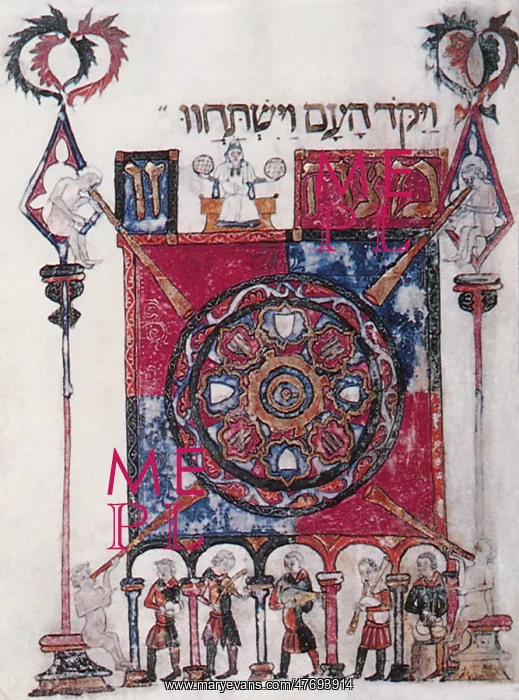 וַיִּקֹד הָעָם וַיִּשְׁתַּחֲווּ
מצה זו
ME
PL
ME
PL
www.maryevans.com/47693914